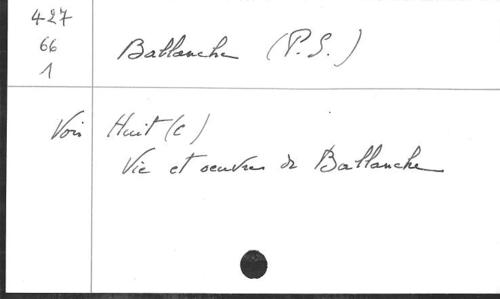 427
66
1
Ballanche (P. S.)
Voir Huit (C)
Vie et oeuvres de Ballanche